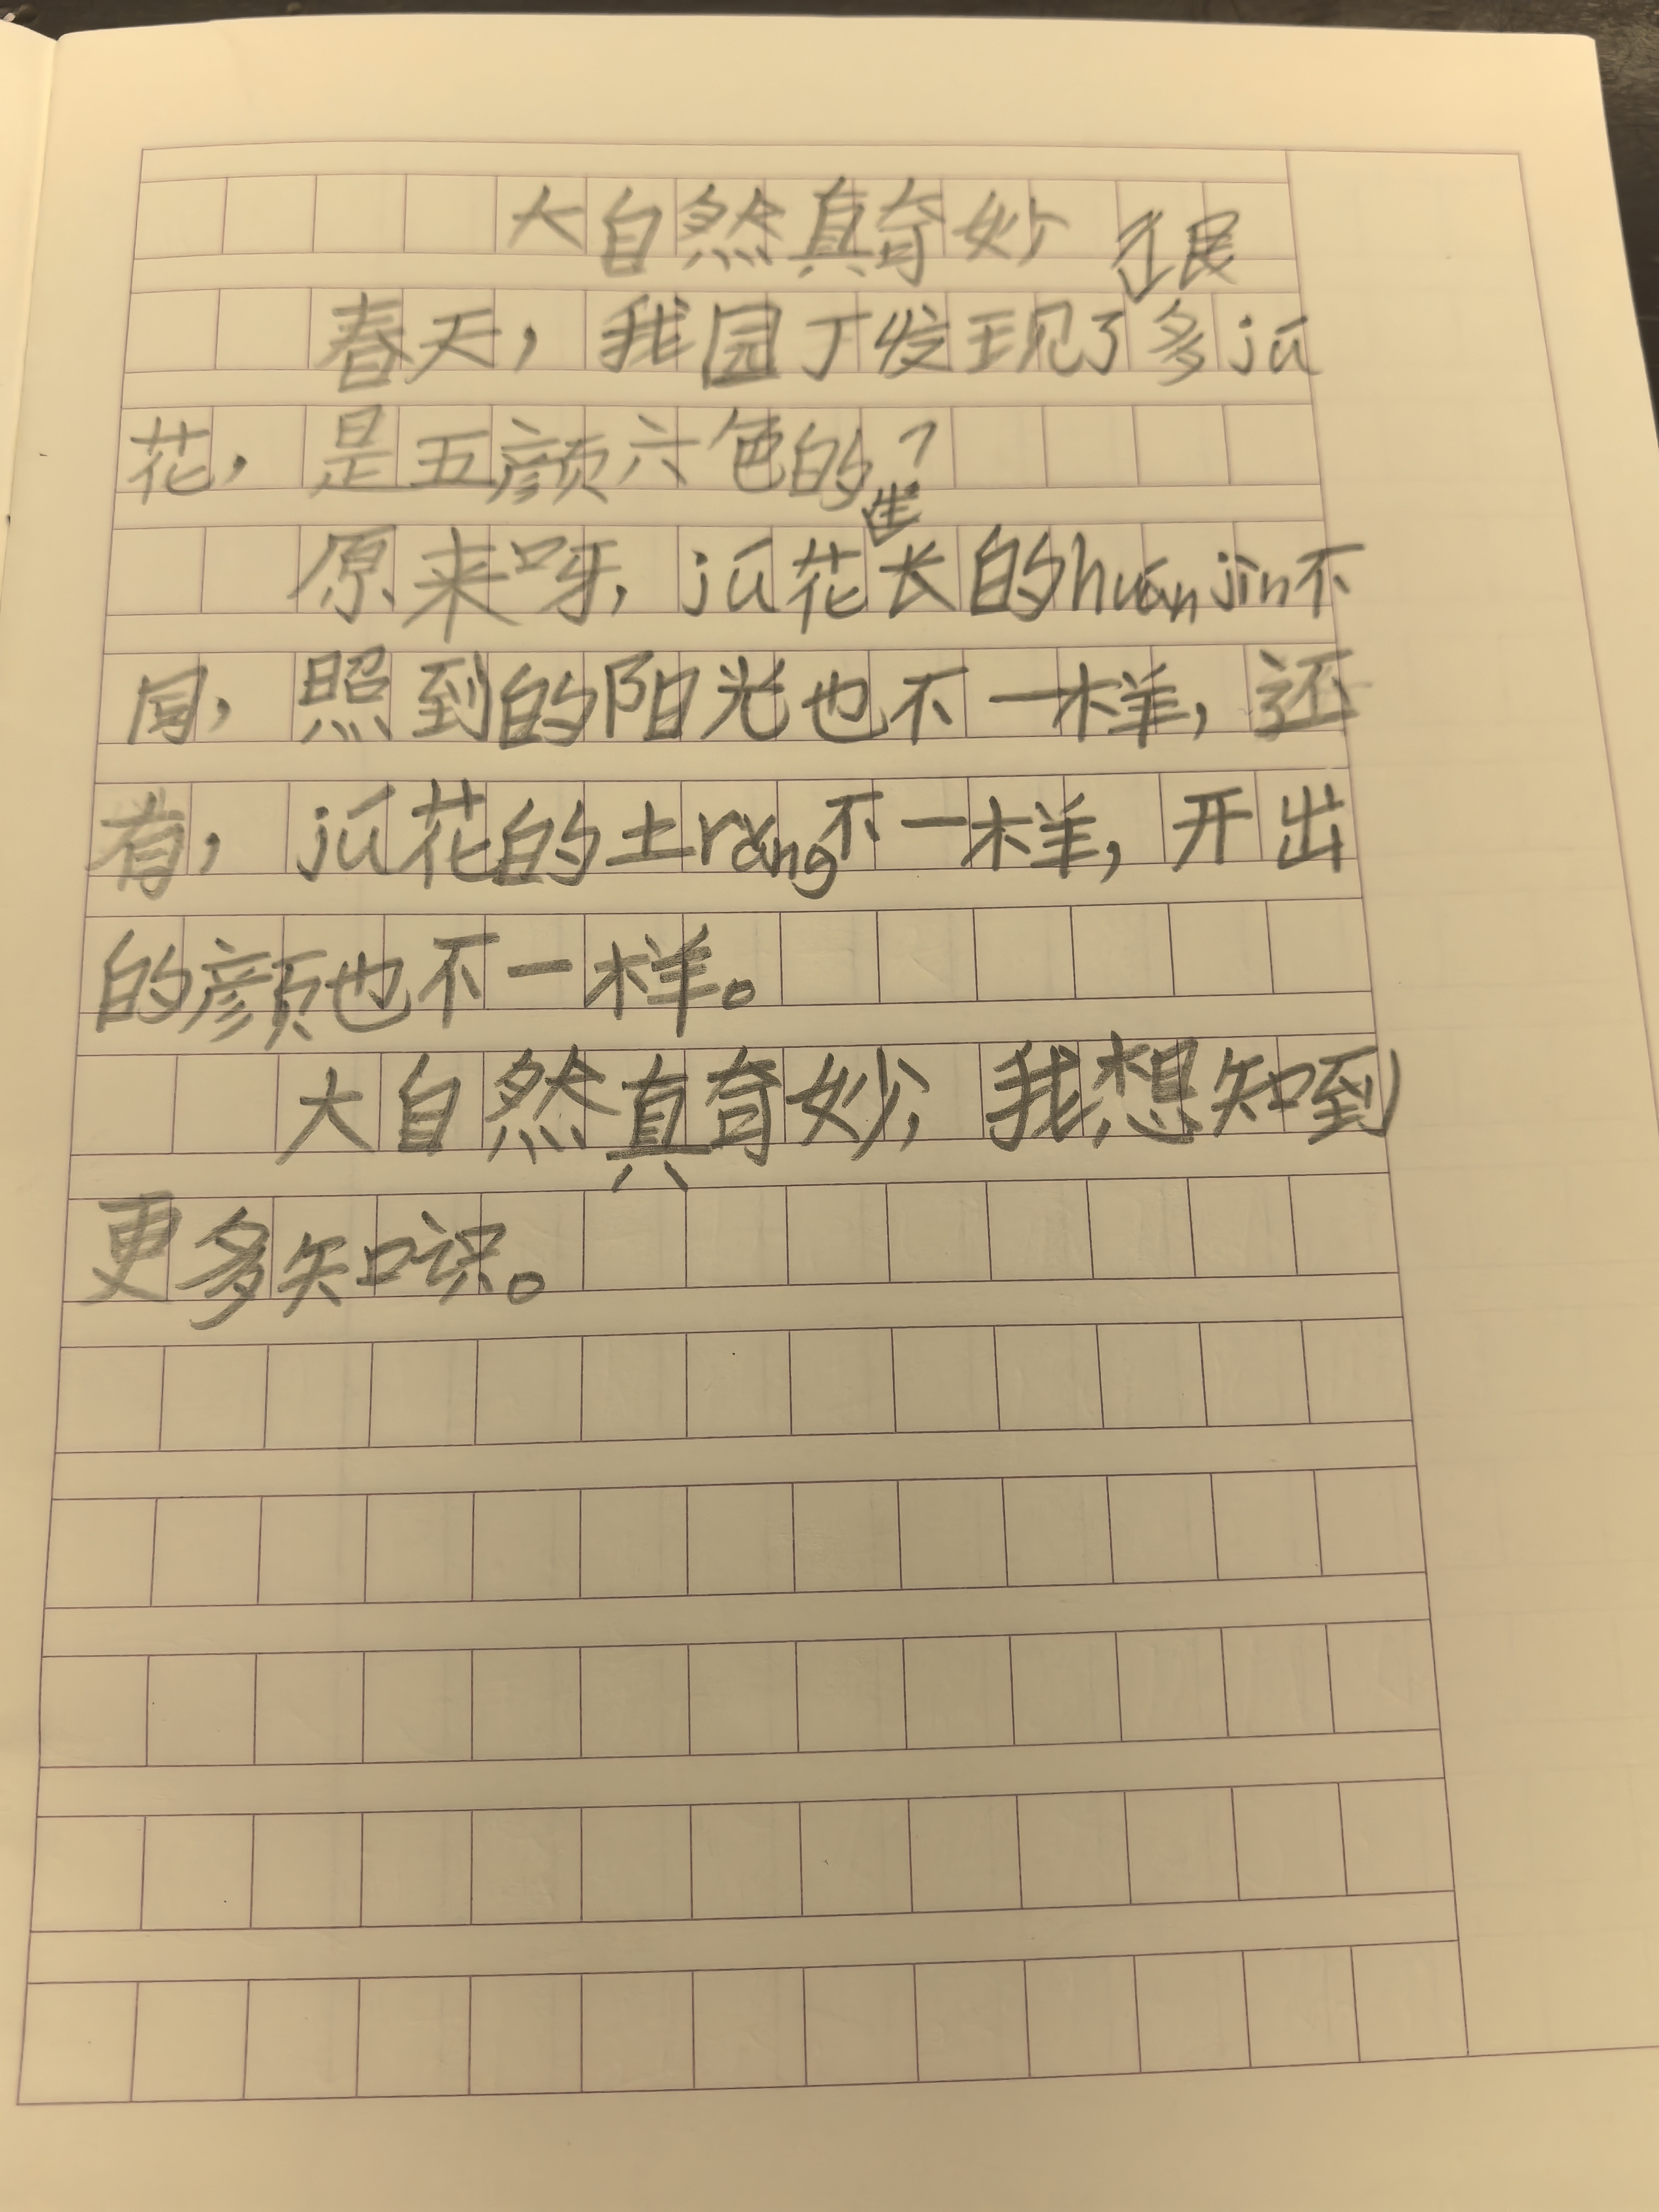 大自然真奇妙
很
春天，我园丁发现了多jú
花，是五颜六色的？
原来呀，jú花长的huán jìn不
同，照到的阳光也不一样，还
有，jú花的土rǎng不一样，开出
的颜也不一样。
大自然真奇妙，我想知到
更多知识。